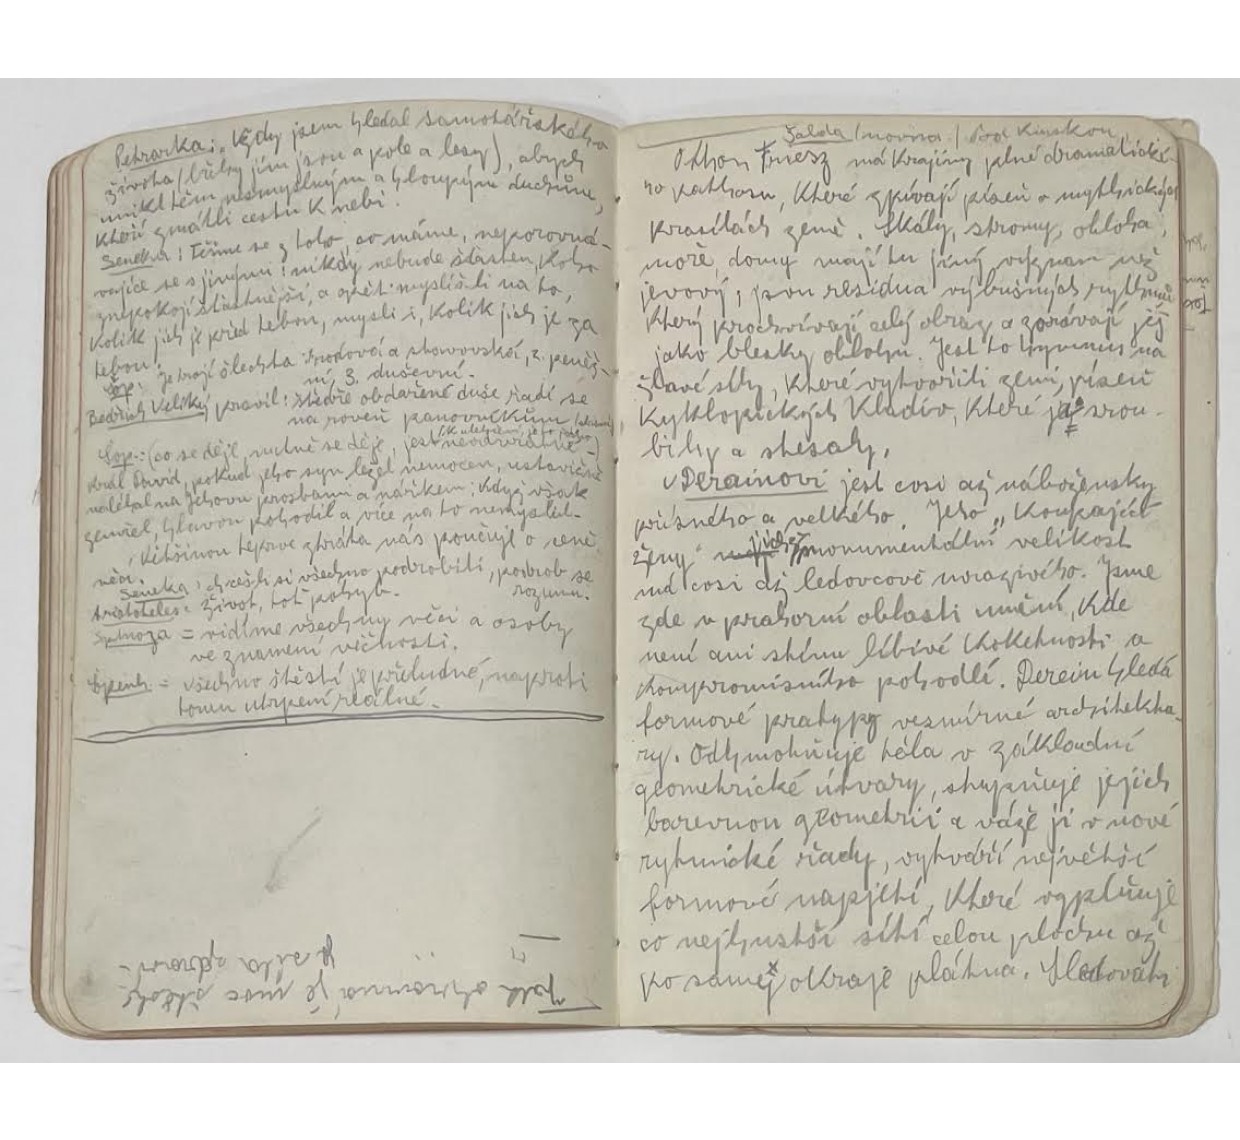 Petrarka: Vždy jsem hledal samotářského
života (břehy jím jsou a pole a lesy), abych
unikl těm nesmyslným a hloupým duchům,
kteří zmátli cestu k nebi.
Seneka: Těšme se z toho, co máme, neporovná-
vajíce se s jinými: nikdy nebude šťasten, koho
znepokojí šťastnější, a opět: myslíš-li na to,
kolik jich je před tebou, mysli i, kolik jich je za
tebou!
Šop: Je trojí šlechta: 1. rodová a stavovská, 2. peněž-
ní, 3. duševní.
Bedřich Veliký pravil: štědře obdařené duše řadí se
na roveň panovníkům
Šop.: (co se děje, nutně se děje, jest neodvratné)
Král David, pokud jeho syn ležel nemocen, ustavičně
naléhal na Jehovu prosbami a nářkem; když však
zemřel, hlavou pohodil a více na to nemyslil.
Většinou teprve ztráta nás poučuje o ceně
věcí.
Seneka: chceš-li si všechno podrobiti, podrob se
rozumu.
Aristoteles: život, toť pohyb.
Spinoza = vidíme všechny věci a osoby
ve znamení věčnosti.
Šopenh = všechno štěstí je přeludné, naproti
tomu utrpení reálné.
Šalda (novina) Pod Kinskou
Othon Friesz má krajiny plné dramatické-
ho pathosu, které zpívají píseň o mythických
krasílách země. Skály, stromy, obloha,
moře, domy mají tu jiný význam než
jevový; jsou residua výbušných rythmů
který prochvívají celý obraz a zorávají jej
jako blesky oblohu. Jest to hymnus na
žhavé síly, které vytvořili zemi, píseň
Kyklopických kladiv, které ji srou-
bily a stesaly.
V Derainovi jest cosi až nábožensky
přísného a velkého. Jeho „Koupající
ženy" jichž monumentální velikost
má cosi až ledovcově mrazivého. Jsme
zde v prahorní oblasti umění, kde
není ani stínu líbivé koketnosti a
kompromisního pohodlí. Derain hledá
formové pratypy vesmírné architektu-
ry. Odhmotňuje těla v základní
geometrické útvary, stupňuje jejich
barevnou geometrii a váže ji v nové
rytmické řady, vytváří největší
formové napjetí, které vyplňuje
co nejhustší sítí celou plochu až
po samej okraje plátna. Sledovati